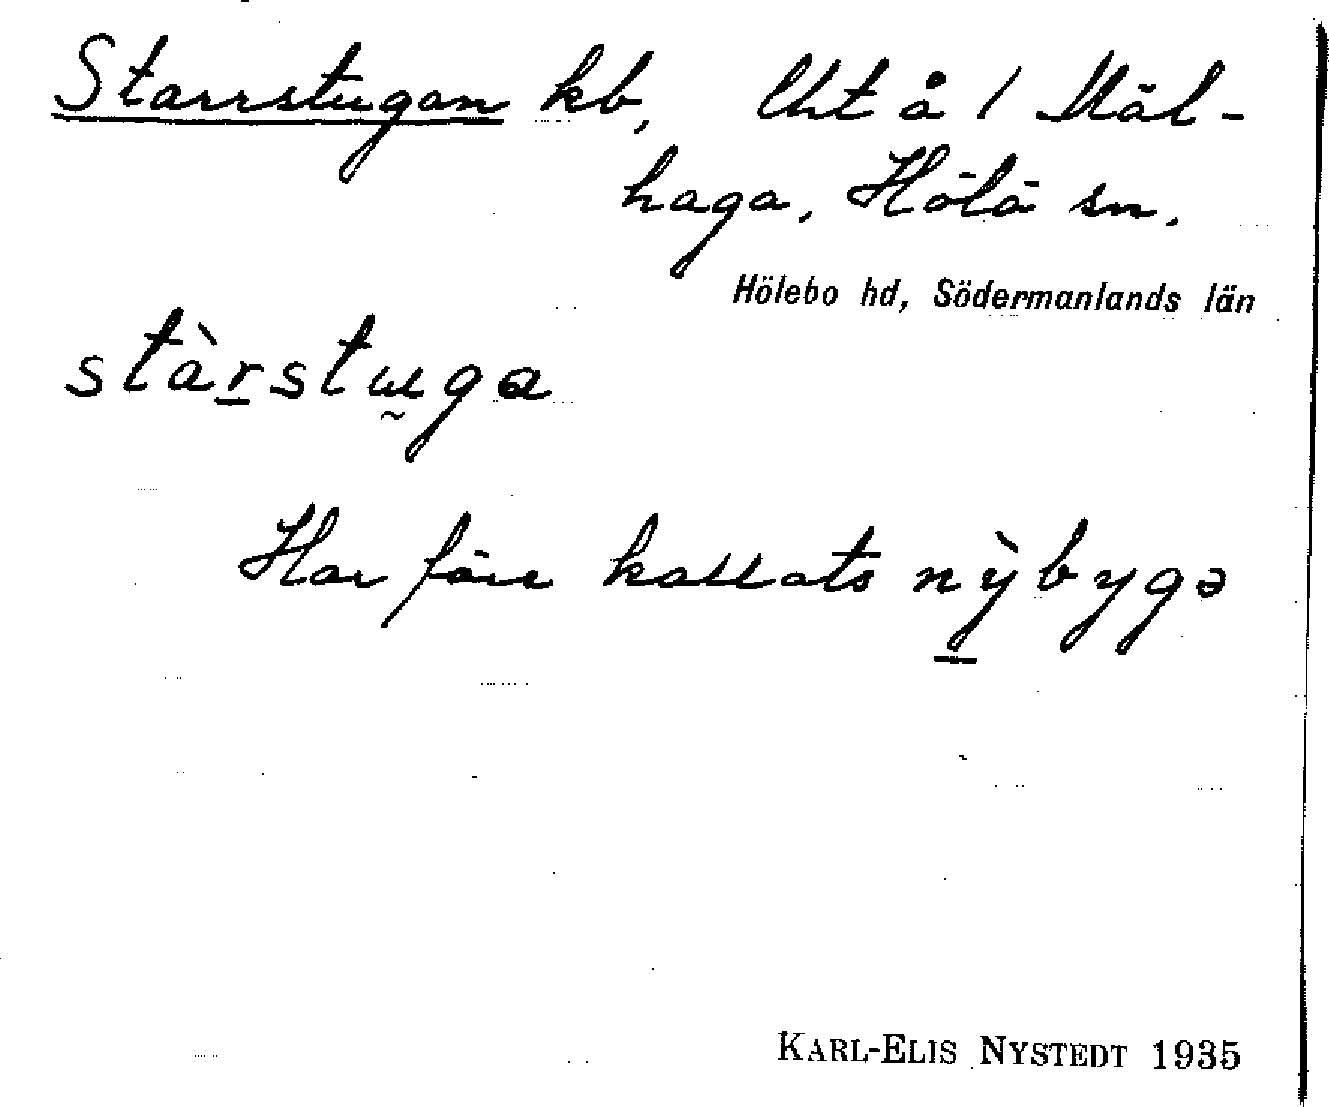 Starrstugan kb, Uht å 1 Mäl-
haga, Hölö sn.
Hölebo hd, Södermanlands län
stàrstuga
Har förr kallats nỳbygə
KARL-ELIS NYSTEDT 1935